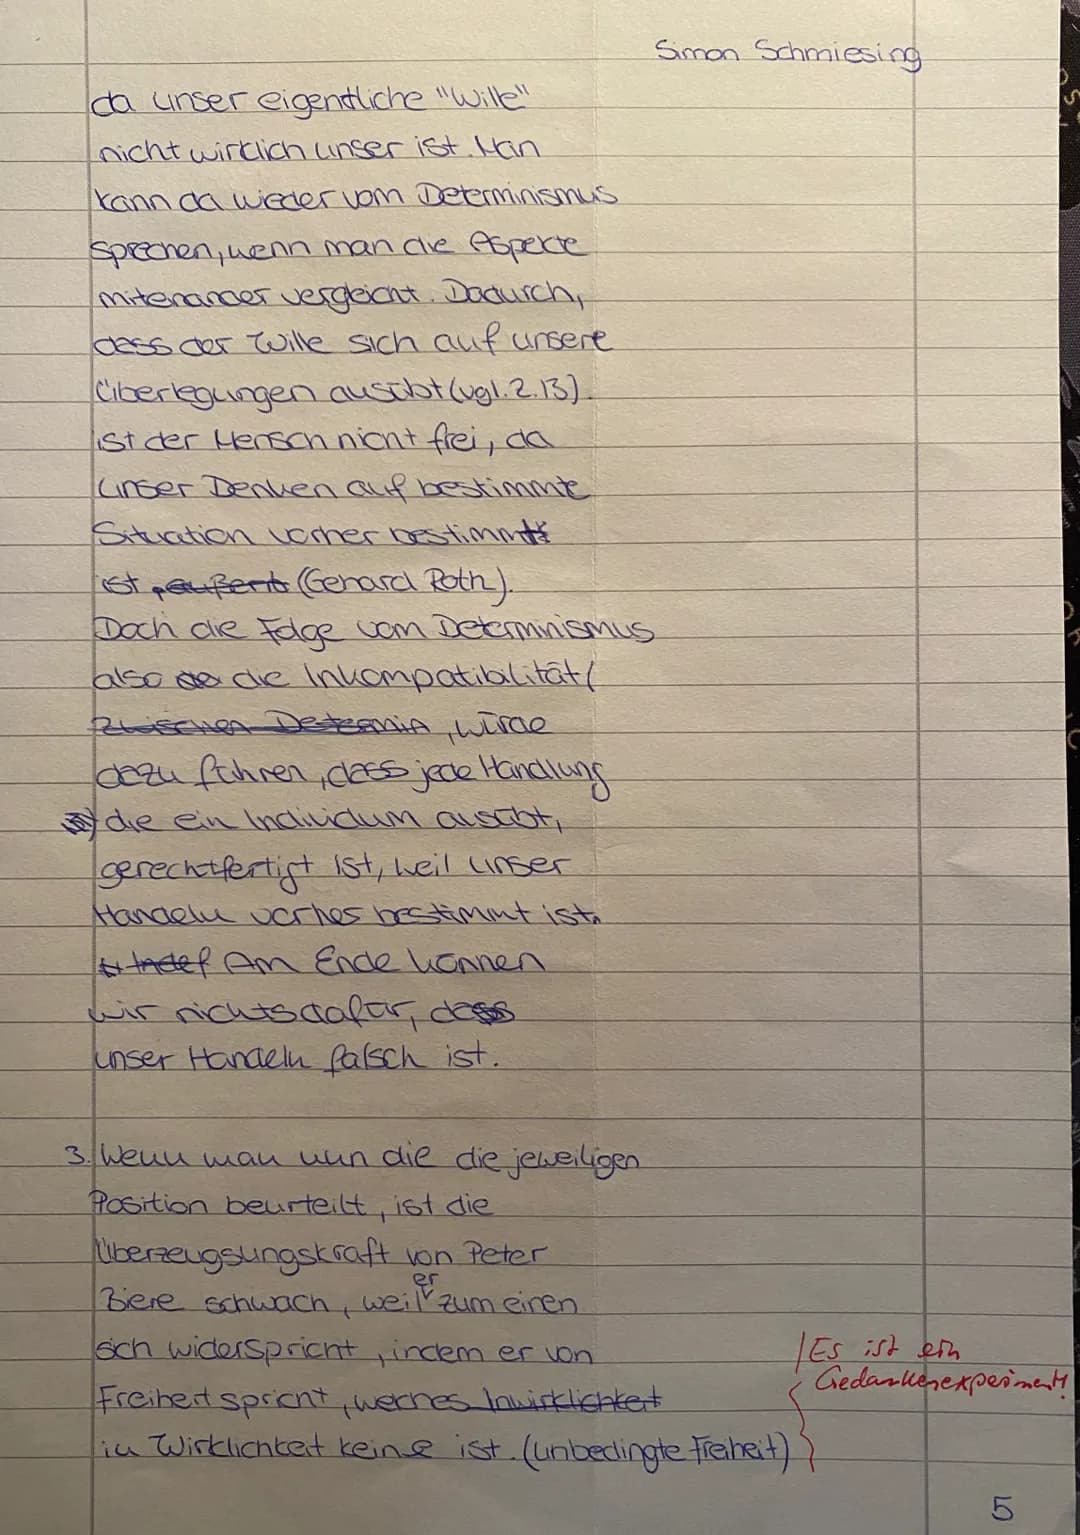 Simon Schmiesing
da unser eigentliche "Wille"
nicht wirklich unser ist. Man
kann da wieder vom Determinismus
sprechen, wenn man die Aspekte
mitenander vergleicht. Dadurch,
dass der Wille sich auf unsere
Überlegungen ausübt (vgl. Z. 13).
ist der Mensch nicht frei, da
unser Denken auf bestimmte
Situation vorher bestimmt
ist, außert (Gerhard Roth).
Doch die Folge vom Determinismus
also die Inkompatibilität
zwischen Determin, würde
dazu führen, dass jede Handlung
die ein Individum ausübt,
gerechtfertigt ist, weil unser
Handeln vorher bestimmt ist.
Am Ende können
wir nichts dafür, dass
unser Handeln falsch ist.
3. Wenn man nun die die jeweiligen
Position beurteilt, ist die
Überzeugsungskraft von Peter
Biere schwach, weil er zum einen
sich widerspricht, indem er von
Freiheit spricht, welches Inwirklichkeit
in Wirklichkeit keine ist. (unbedingte Freiheit)
Es ist ein
Gedankenexperiment!
5